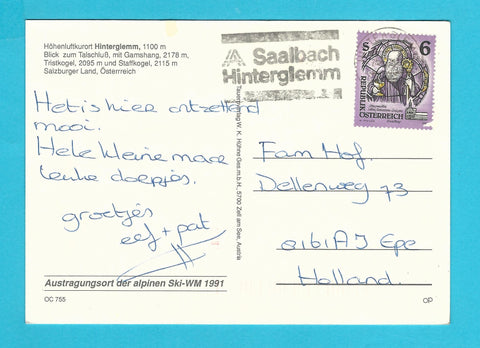 Höhenluftkurort Hinterglemm, 1100 m
Blick zum Talschluß, mit Gamshang, 2178 m,
Tristkogel, 2095 m und Staffkogel, 2115 m
Salzburger Land, Österreich
Saalbach
Hinterglemm
S 6
REPUBLIK
ÖSTERREICH
Het is hier ontzettend
mooi.
Hele kleine maar
leuke dorpjes.
groetjes
eef + pat
W. K. Hühne Ges.m.b.H., 5700 Zell am See, Austria
Fam Hof.
Dellenweg 73
8161AJ Epe
Holland.
Austragungsort der alpinen Ski-WM 1991
OC 755
OP